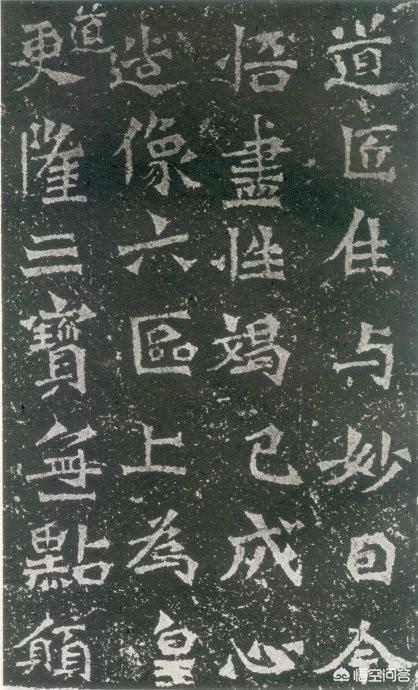 道匠住与妙曰
悟盡性竭己成心
造像六區上為皇
道更隆三寶無點願
悟空问答